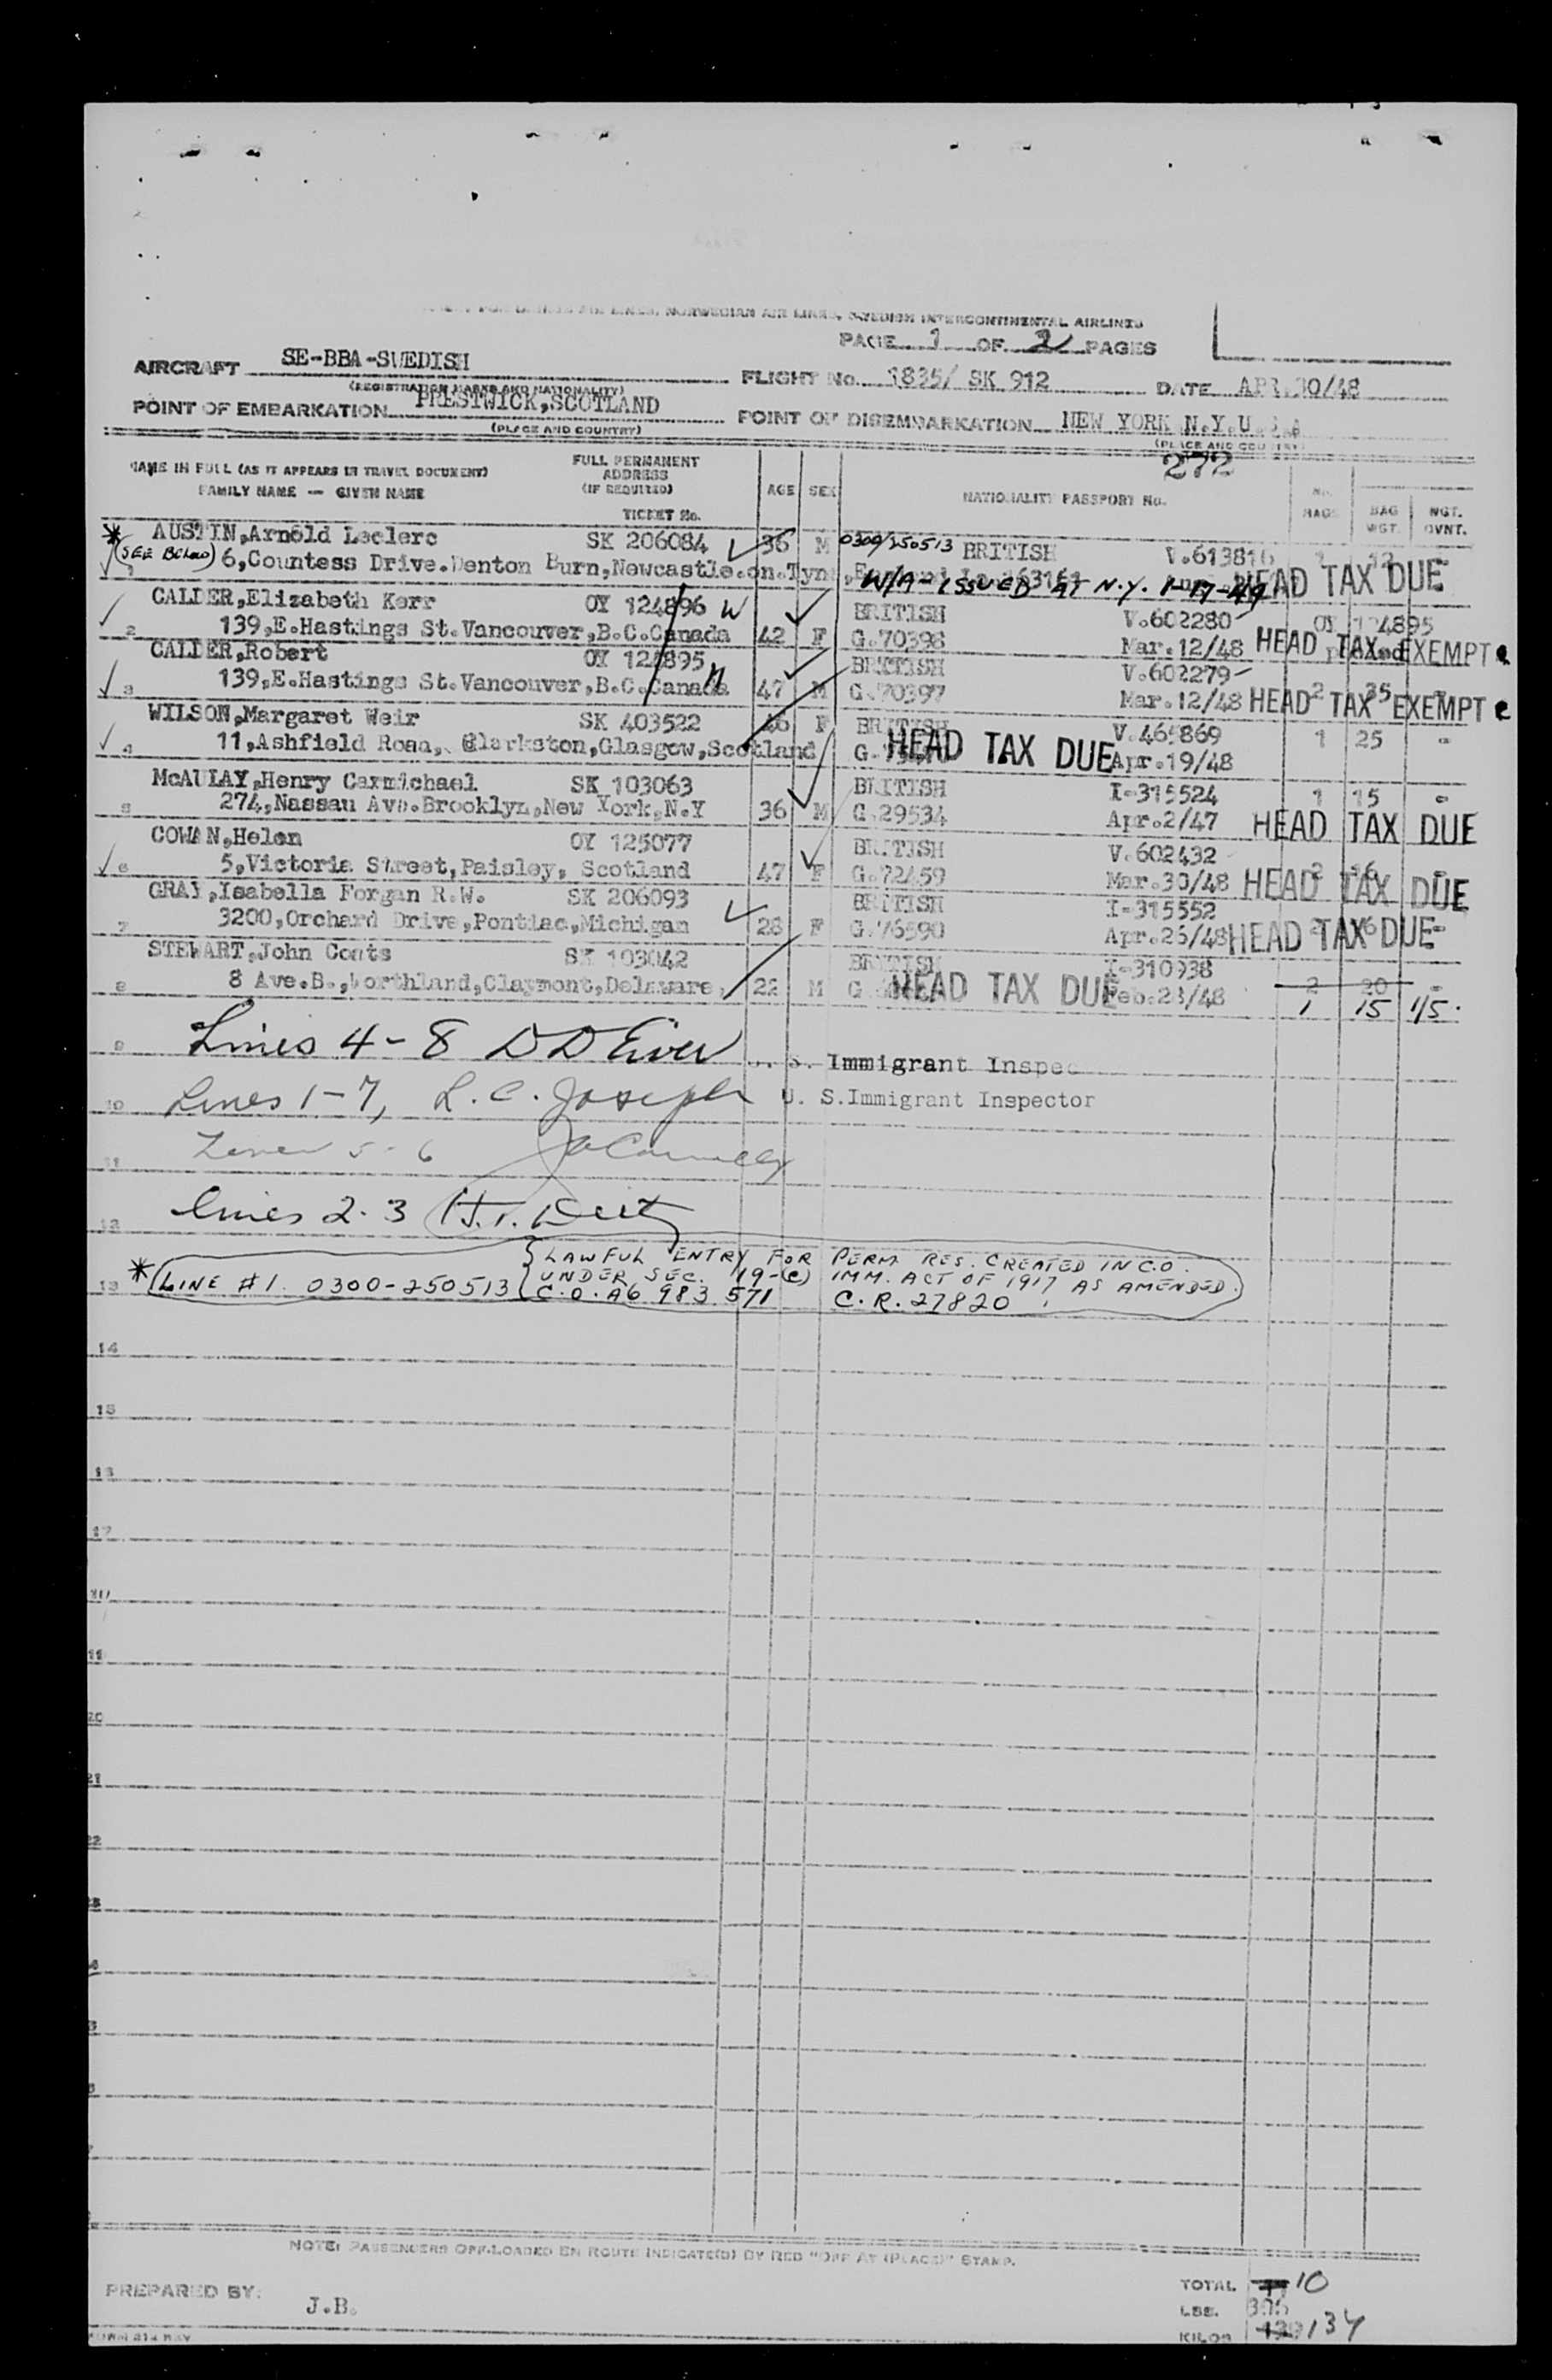 NORWEGIAN AIR LINES, SWEDISH INTERCONTINENTAL AIRLINES
PAGE 1 OF 2 PAGES
AIRCRAFT SE-BBA-SWEDISH FLIGHT No. 1835/ SK 912 DATE APR.30/48
(REGISTRATION MARKS AND NATIONALITY)
POINT OF EMBARKATION PRESTWICK,SCOTLAND POINT OF DISEMBARKATION NEW YORK N.Y.U.S.A
(PLACE AND COUNTRY) (PLACE AND COUNTRY)
272
NAME IN FULL (AS IT APPEARS IN TRAVEL DOCUMENT) FULL PERMANENT ADDRESS (IF REQUIRED)
FAMILY NAME — GIVEN NAME TICKET No. AGE SEX NATIONALITY PASSPORT No. No. BAGS BAG WGT. WGT. OVNT.
* AUSTIN,Arnold Leclerc SK 206084 36 M 0300/250513 BRITISH V.613816 1 12 -
(SEE BELOW) 1 6,Countess Drive.Denton Burn,Newcastle.on.Tyne, W/A - ISSUED AT N.Y. 1-17-49 HEAD TAX DUE
CALDER,Elizabeth Kerr OY 124896 W BRITISH V.602280 OY 124895
2 139,E.Hastings St.Vancouver,B.C.Canada 42 F G.70396 Mar.12/48 HEAD TAX EXEMPT
CALDER,Robert OY 124895 BRITISH V.602279
3 139,E.Hastings St.Vancouver,B.C.Canada 47 M G.70397 Mar.12/48 2 35 HEAD TAX EXEMPT
WILSON,Margaret Weir SK 403522 46 F BRITISH V.465869 1 25 -
4 11,Ashfield Road, Clarkston,Glasgow,Scotland HEAD TAX DUE Apr.19/48
McAULAY,Henry Carmichael SK 103063 BRITISH I-315524 1 15 -
5 274,Nassau Ave.Brooklyn,New York,N.Y 36 M G.29534 Apr.2/47 HEAD TAX DUE
COWAN,Helen OY 125077 BRITISH V.602432
6 5,Victoria Street,Paisley, Scotland 47 F G.72459 Mar.30/48 2 16 HEAD TAX DUE
GRAY,Isabella Forgan R.W. SK 206093 BRITISH I-315552
7 3200,Orchard Drive,Pontiac,Michigan 28 F G.76590 Apr.26/48 HEAD TAX DUE
STEWART,John Coats SK 103042 BRITISH I-310938
8 8 Ave.B.,Worthland,Claymont,Delaware, 22 M G HEAD TAX DUE Feb.23/48 2 20 -
1 15 1/5.
9 Lines 4-8 U. S. Immigrant Inspec
10 Lines 1-7, L.C. Joseph U. S.Immigrant Inspector
11 Lines 5-6
12 Lines 2-3
* 13 LINE #1. 0300-250513 { LAWFUL ENTRY FOR PERM. RES. CREATED IN C.O.
UNDER SEC. 19-(c) IMM. ACT OF 1917 AS AMENDED.
C.O. A6 983 571 C.R. 27820
14
15
16
17
18
19
20
21
22
23
NOTE: PASSENGERS OFF-LOADED EN ROUTE INDICATE(D) BY RED "OFF AT (PLACE)" STAMP.
PREPARED BY: J.B.
TOTAL 10
LBS.
KILOS 134